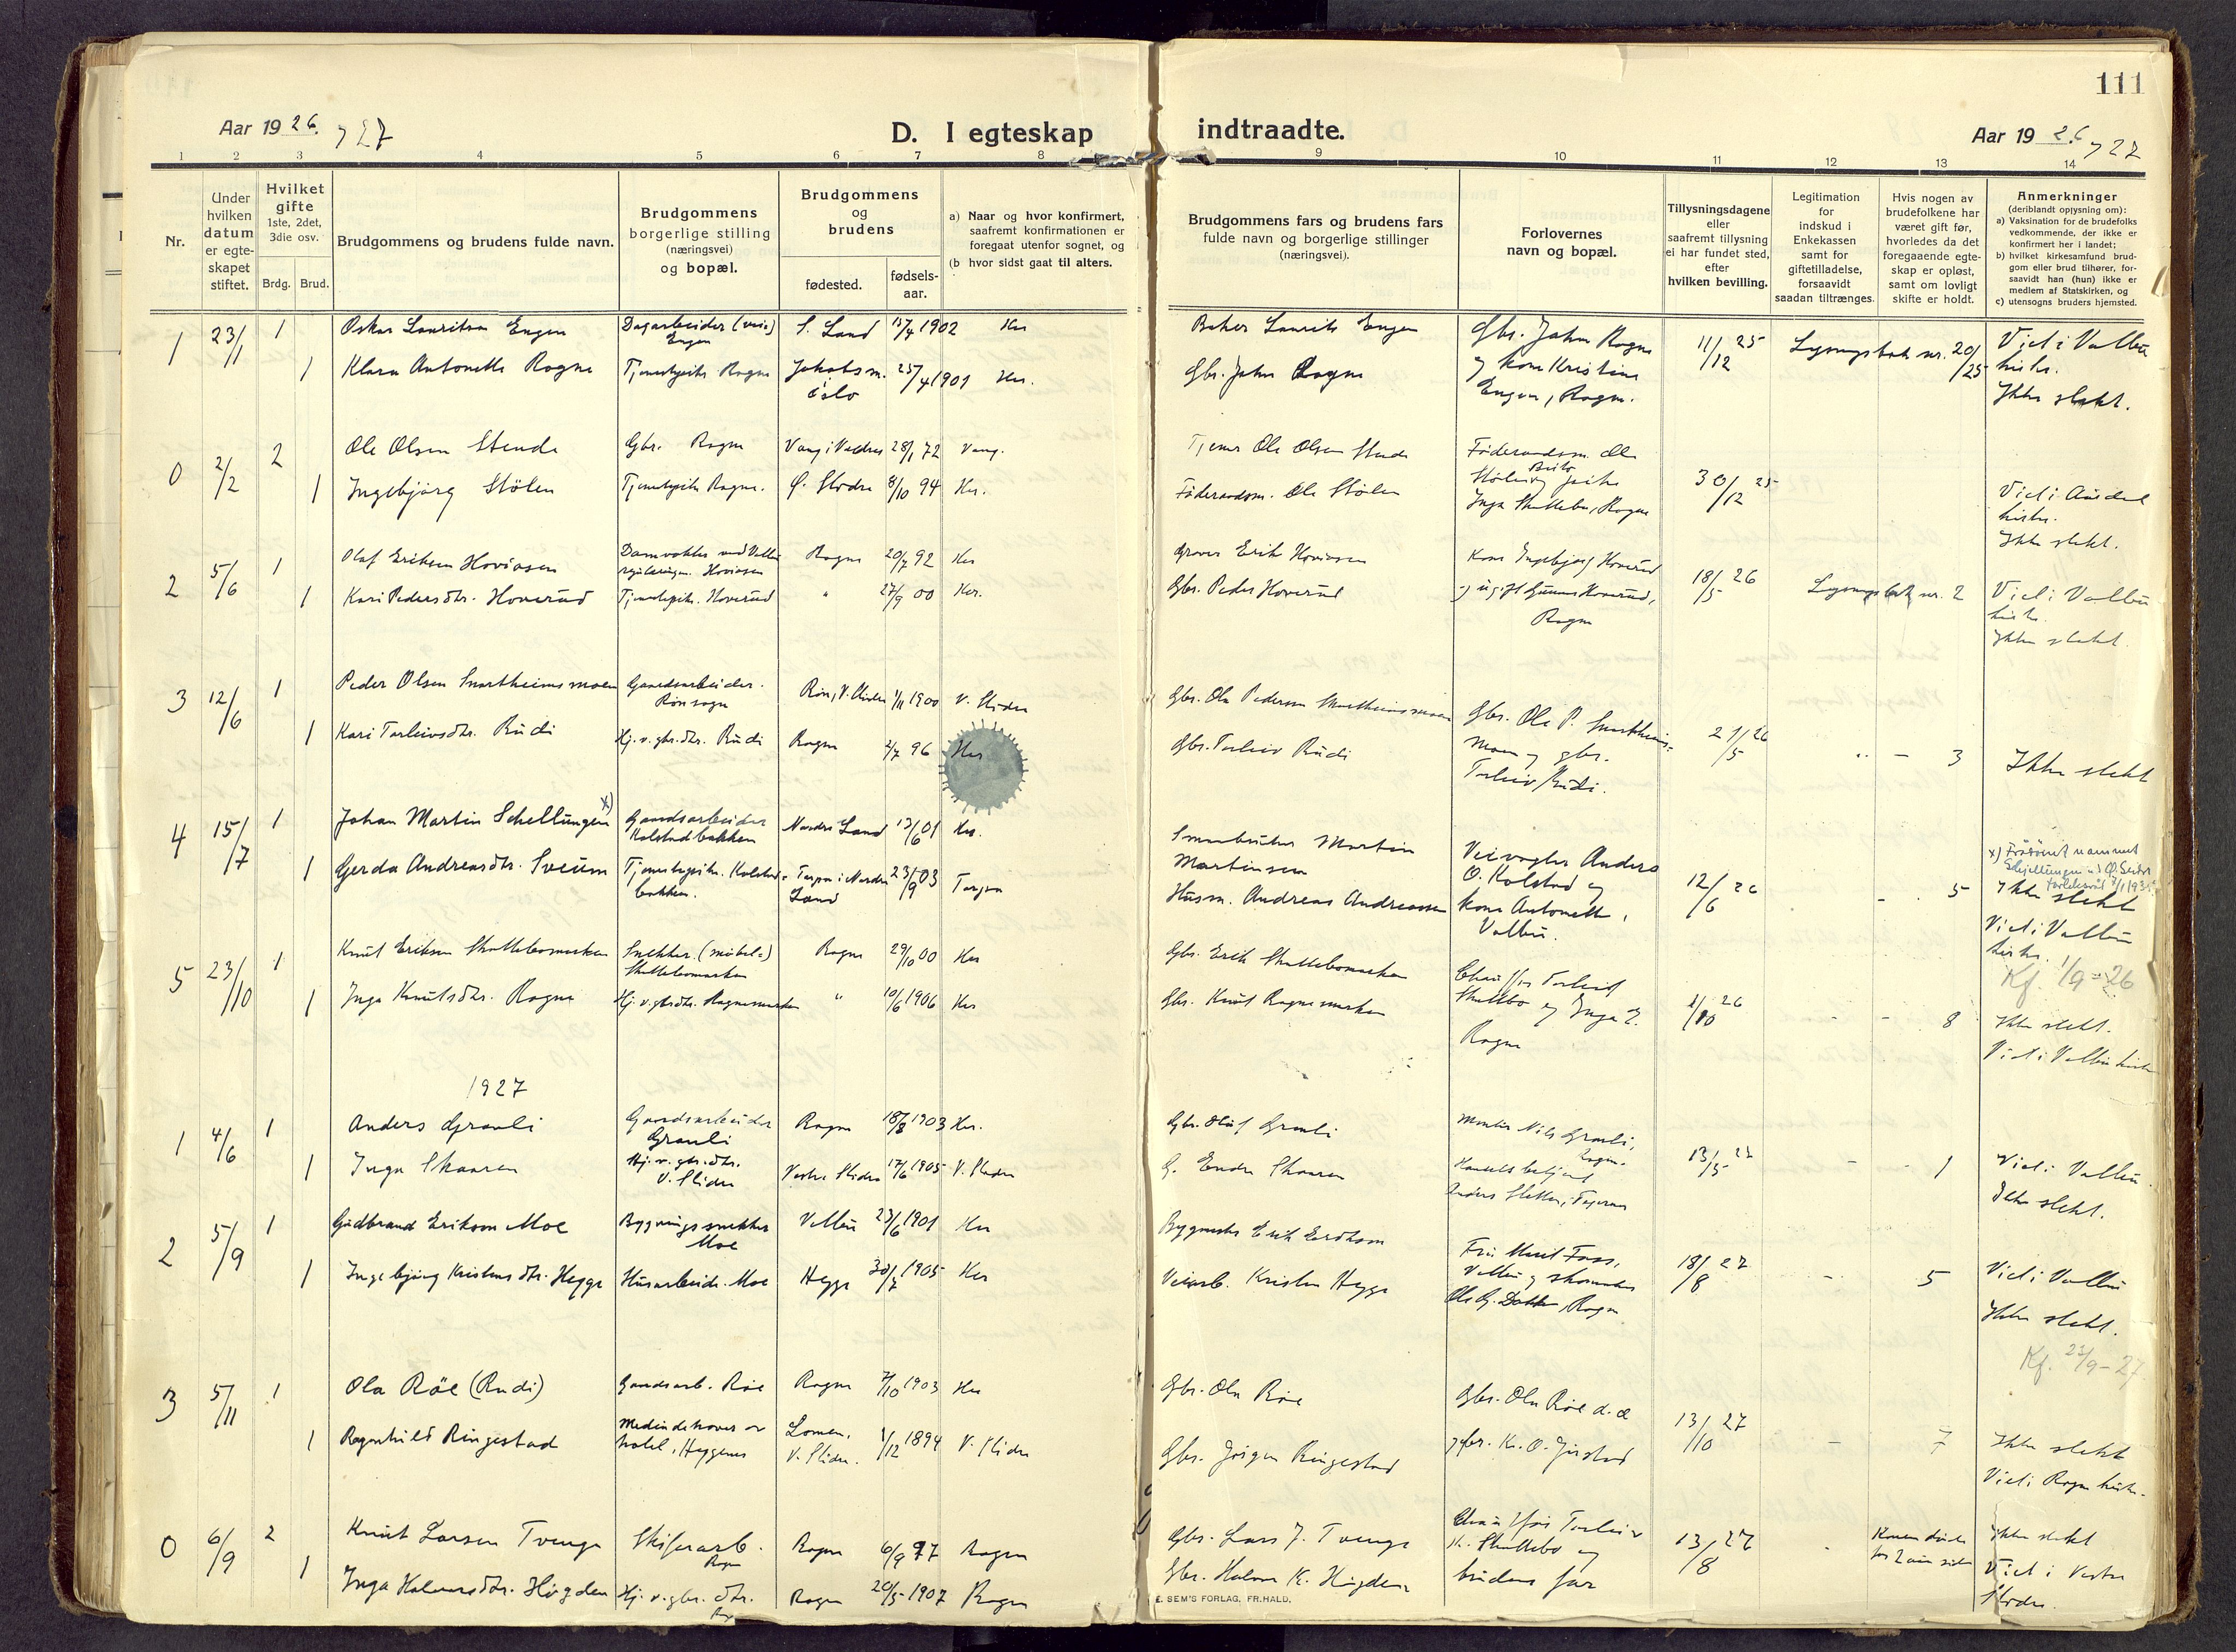 111
Aar 19 26. , 27
D. I egteskap indtraadte.
Aar 19 26 , 27
1 2 3 4 5 6 7 8 9 10 11 12 13 14
Nr.
Under hvilken datum er egte-skapet stiftet.
Hvilket gifte 1ste, 2det, 3die osv.
Brdg. Brud.
Brudgommens og brudens fulde navn.
Brudgommens borgerlige stilling (næringsvei) og bopæl.
Brudgommens og brudens
fødested. fødsels-aar.
a) Naar og hvor konfirmert, saafremt konfirmationen er foregaat utenfor sognet, og
(b hvor sidst gaat til alters.
Brudgommens fars og brudens fars fulde navn og borgerlige stillinger (næringsvei).
Forlovernes navn og bopæl.
Tillysningsdagene eller saafremt tillysning ei har fundet sted, efter hvilken bevilling.
Legitimation for indskud i Enkekassen samt for giftetilladelse, forsaavidt saadan tiltrænges.
Hvis nogen av brudefolkene har været gift før, hvorledes da det foregaaende egte-skap er opløst, samt om lovligt skifte er holdt.
Anmerkninger
(deriblandt oplysning om):
a) Vaksination for de brudefolks vedkommende, der ikke er konfirmert her i landet;
b) hvilket kirkesamfund brud-gom eller brud tilhører, for-saavidt han (hun) ikke er medlem af Statskirken, og
c) utensogns bruders hjemsted.
1 23/1 1 Oskar Lauritsen Engen Dagarbeider (vei=) Engen S. Land 1902 Her
Baker Laurits Engen Gbr. John Rogne 11/12 25 Lysningsbok nr. 20/25 Viet i Valbu
1 Klara Antonette Rogne Tjenestepike Rogne Jakobs m. Oslo 25/4 1901 Her.
Gbr. John Rogne og kone Kristine Engen, Rogne. kirke. Ikke slekt.
0 2/2 2 Ole Olsen Stende Gbr. Rogne Vang i Valdres 28/1 72 Vang.
Tjener Ole Olsen Stende Føderaadsm. Ole Stølen og pike 30/12 25
1 Ingebjørg Stølen Tjenestepike Rogne. Ø. Slidre 8/10 94 Her.
Føderaadsm. Ole Stølen Inga Skattebu, Rogne Viet i Aurdal kirke. Ikke slekt.
2 5/6 1 Olaf Eriksen Hoviosen Damvokter ved Valbu reguleringen. Hoviosen Rogne 20/7 92 Her
Graver Erik Hoviosen Kone Ingebjørg Hoverud 18/5 26 Lysningsbok nr. 2 Viet i Valbu
1 Kari Pedersdtr. Hoverud Tjenestepike. Hoverud " 27/9 00 Her.
Gbr. Peder Hoverud og ugift Gunnar Hoverud, Rogne kirke. Ikke slekt.
3 12/6 1 Peder Olsen Snortheimsmoen Gaardsarbeider. Røn sogn Røn, V. Slidre 1/11 1900 V. Slidre
Gbr. Ole Pedersen Snortheimsmoen Gbr. Ole P. Snortheims= 21/5 26 " - 3 Ikke slekt
1 Kari Torleivsdtr. Rudi Hj. v. gbr. dtr. Rudi Rogne 2/7 96 Her
Gbr. Torleiv Rudi moen og gbr. Torleiv Rudi.
4 15/7 1 Johan Martin Schellungen x) Gaardsarbeider Kolstadbakken Nordre Land 13/6 01 Her.
Smaabruker Martin Martinsen Veivogter Anders O. Kolstad og 12/6 26 - 5
1 Gerda Andreasdtr. Sveum Tjenestepike. Kolstad=bakken. Torpa i Nordre Land 23/9 03 Torpa
Husm. Andreas Andreassen kone Antonette, Valbu. Ikke slekt Viet i Valbu kirke.
Kf. 1/9-26
5 23/10 1 Knut Eriksen Skattebomarken Snekker. (møbel=) Skattebomarken Rogne 29/10 00 Her
Gbr. Erik Skattebomarken Chauffør Torleif Skattebo og Inga 1/10 26 - - 8 Ikke slekt.
1 Inga Knutsdtr. Rogne Hj. v. gbrdtr. Rognemarken " 10/6 1906 Her
Gbr. Knut Rognemarken Rogne Viet i Valbu kirke
1927
1 4/6 1 Anders Granli Gaardsarbeider Granli Rogne 18/8 1903 Her.
Gbr. Oluf Granli Montør Nils Granli, Rogne. 13/5 27 - - 1 Viet i Valbu
1 Inga Skaaren Hj. v. gbr. dtr. V. Slidre Vestre Slidre 17/6 1905 V. Slidre
G. Endre Skaaren Handelsbetjent Anders Sletten, Fagernes Ikke slekt.
2 5/9 1 Gudbrand Eriksen Moe Bygningssnekker Moe Valbu 23/6 1901 Her
Bygmester Erik Fru Marit Foss, 18/8 27 - 5 Viet i Valbu
1 Ingebjørg Kristensdtr. Hegge Husarbeide. Moe Hegge 30/7 1905 Her
Veiarb. Kristen Hegge Valbu og skomaker Ole G. Dokken, Rogne Ikke slekt.
Kf. 23/9-27
3 5/11 1 Ola Röe (Rudi) Gaardsarb. Röe Rogne 7/10 1903 Her
Gbr. Ola Röe Gbr. Ola Röe d. æ 13/10 27 - 7 Ikke slekt
1 Ragnhild Ringestad Medindehaver av hotel, Heggenes Lomen, V. Slidre. 1/12 1894 V. Slidre
Gbr. Jørgen Ringestad og gbr. Kr. O. Jørstad Viet i Rogne kirke.
0 6/9 2 Knut Larsen Tvenge Skiferarb. Rogne Rogne 6/9 77 Rogne
Gbr. Lars J. Tvenge Chauffør Torleiv K. Skattebo og 13/8 27 Konen døde for 2 aar siden Ikke slekt
1 Inga Halvorsdtr. Høgden Hj. v. gbr. dtr. Rogne 20/5 1907 Rogne
Gbr. Halvor K. Høgden brudens far Viet i Vestre Slidre.
E. SEM'S FORLAG, FR.HALD.